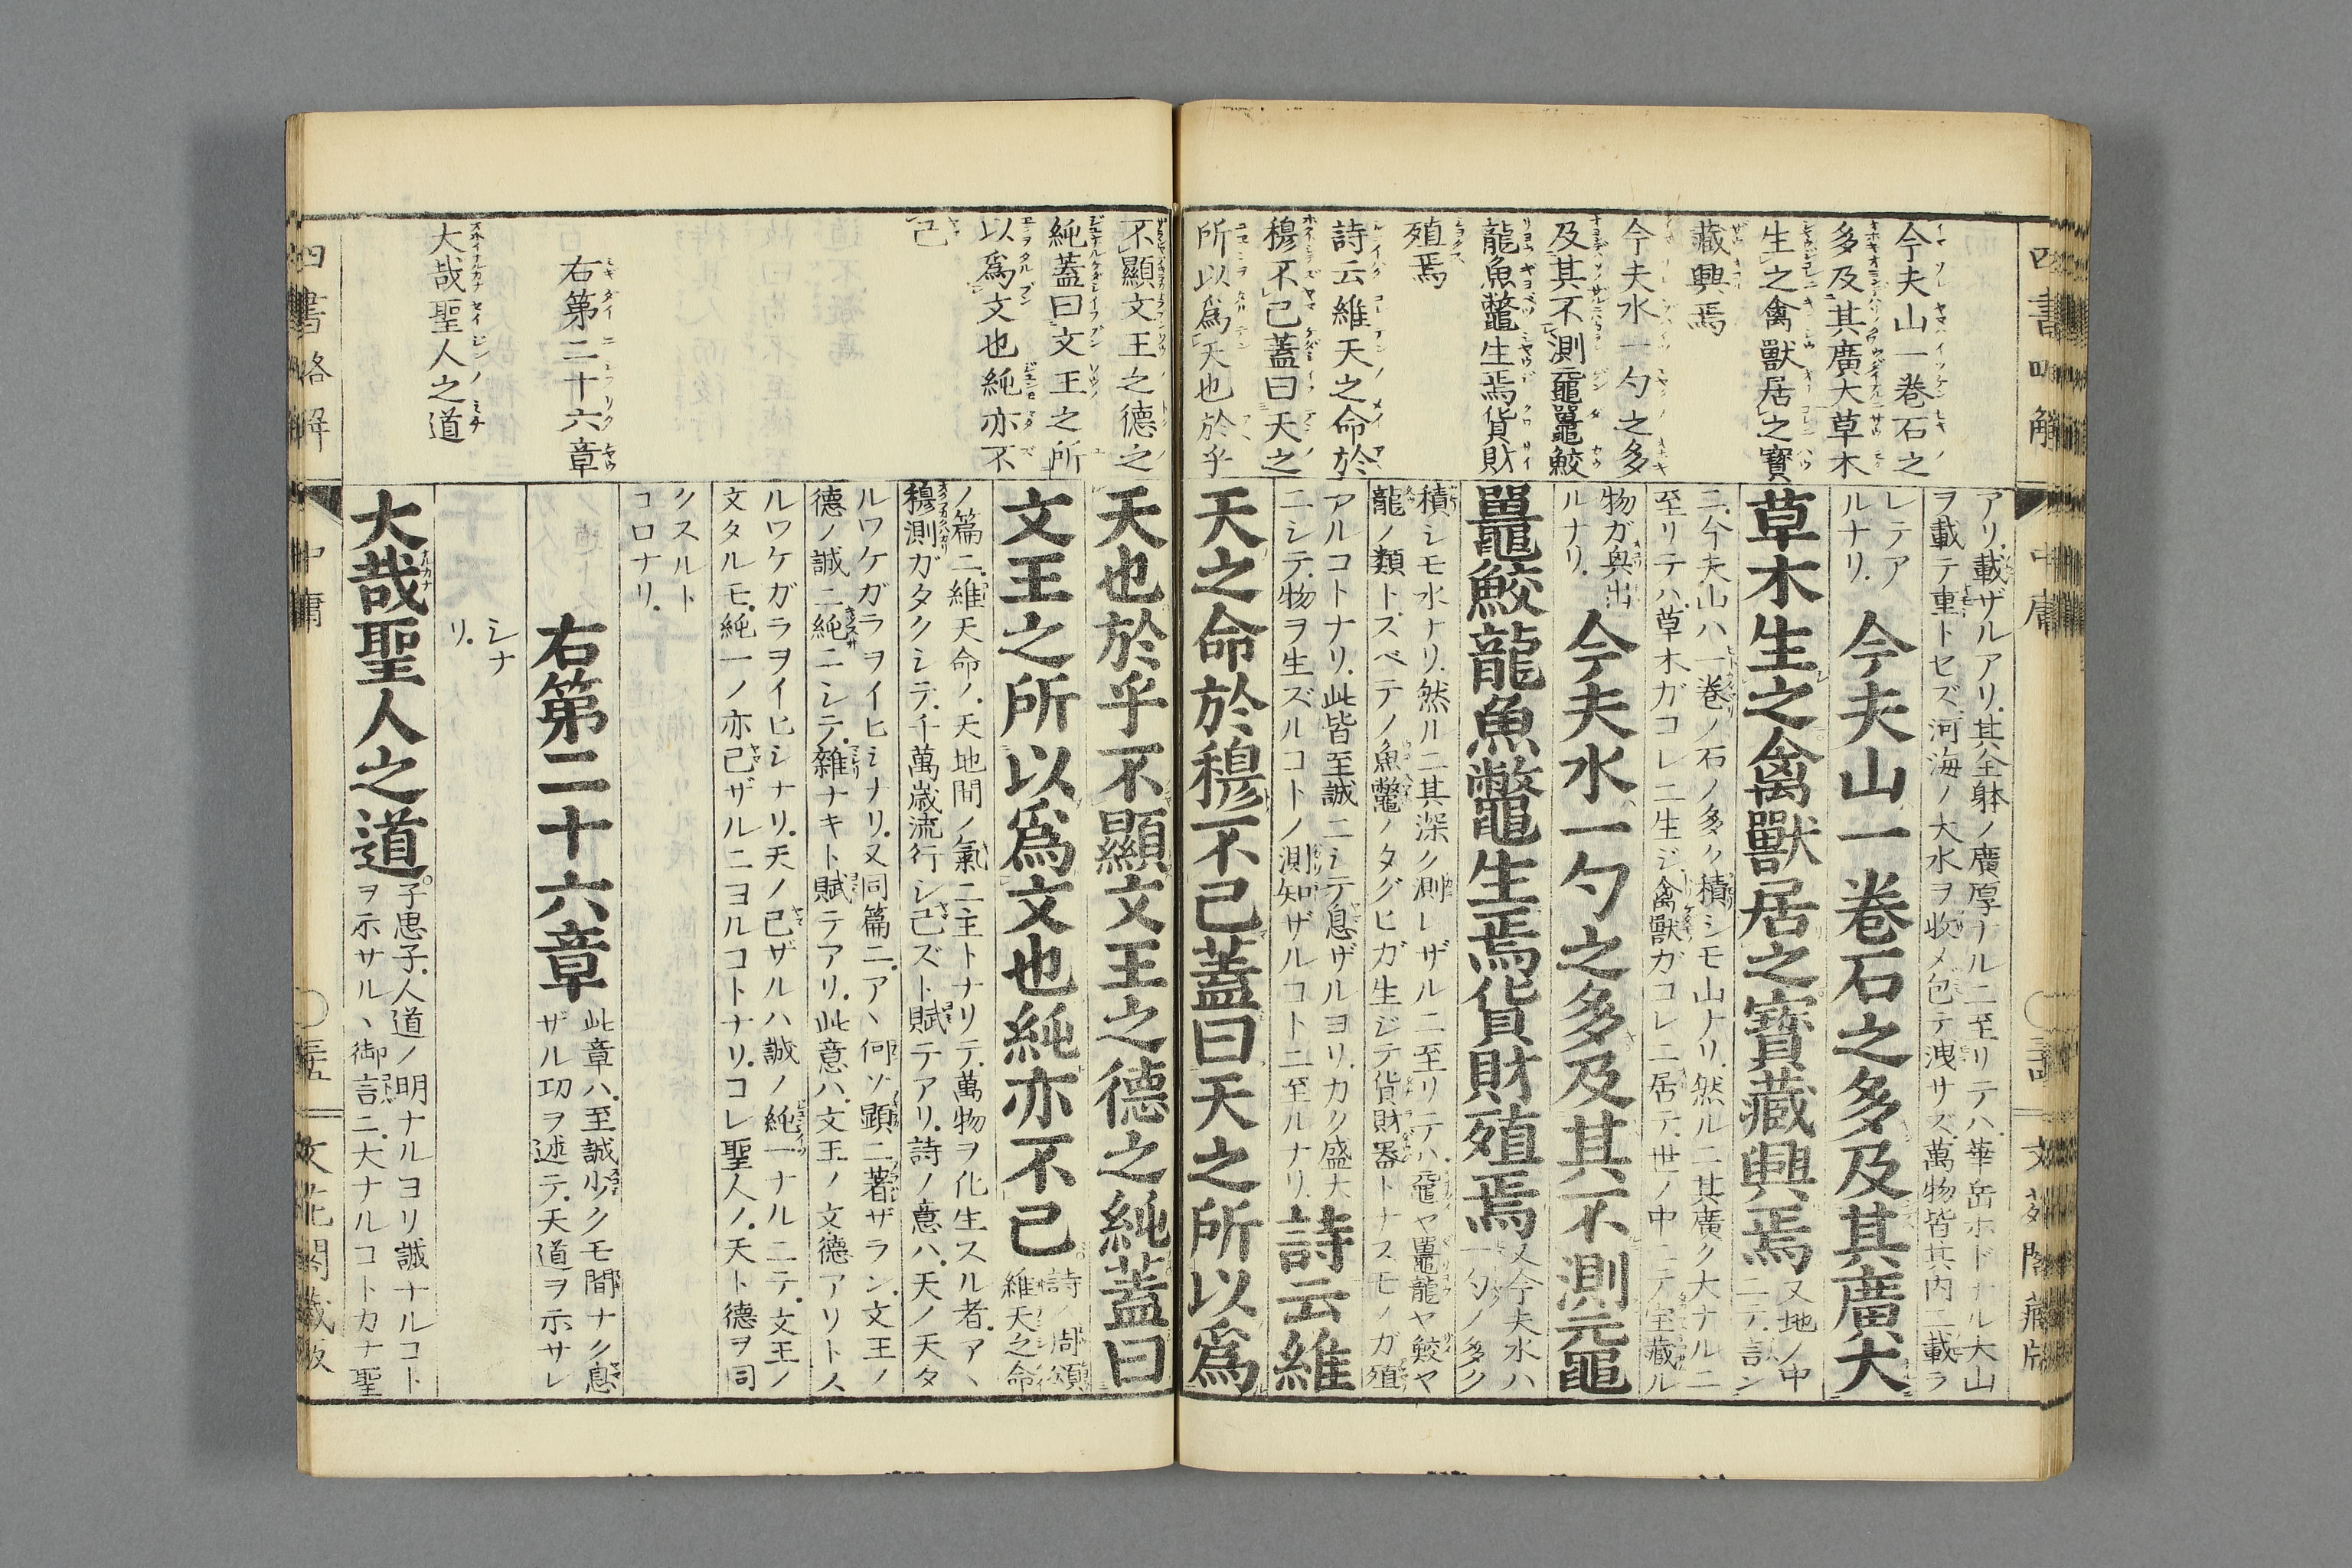 四書略解
中庸
文苑閣藏版
今夫山一巻石之
多及其廣大草木
生之禽獸居之寳
藏興焉
今夫水一勺之多
及其不測黿鼉鮫
龍魚鼈生焉貨財
殖焉
詩云維天之命於
穆不已蓋曰天之
所以爲天也於乎
アリ載ザルアリ其全躰ノ廣厚ナルニ至リテハ華岳ホドナル大山
ヲ載テ重トセズ河海ノ大水ヲ收メ包テ洩サズ萬物皆其内ニ載ラ
レテア
ルナリ
今夫山一巻石之多及其廣大
草木生之禽獸居之寳藏興焉
又地ノ中
ニテ言ン
ニ今夫山ハ一巻ノ石ノ多ク積シモ山ナリ然ルニ其廣ク大ナルニ
至リテハ草木ガコレニ生ジ禽獸ガコレニ居テ世ノ中ニテ宝藏ル
物ガ興出
ルナリ
今夫水一勺之多及其不測黿
鼉鮫龍魚鼈生焉貨財殖焉
又今夫水ハ
一勺ノ多ク
積シモ水ナリ然ルニ其深ク測レザルニ至リテハ黿ヤ鼉龍ヤ鮫ヤ
龍ノ類トスベテノ魚鼈ノタグヒガ生ジテ貨財器トナスモノガ殖
アルコトナリ此皆至誠ニシテ息ザルヨリカク盛大
ニシテ物ヲ生ズルコトノ測知ザルコトニ至ルナリ
詩云維
天之命於穆不已蓋曰天之所以爲
不顯文王之德之
純蓋曰文王之所
以爲文也純亦不
已
右第二十六章
大哉聖人之道
天也於乎不顯文王之德之純蓋曰
文王之所以爲文也純亦不已
詩ノ周頌
維天之命
ノ篇ニ維天命ノ天地間ノ氣ニ主トナリテ萬物ヲ化生スル者アヽ
穆測ガタクシテ千萬歳流行シ已ズト賦テアリ詩ノ意ハ天ノ天タ
ルワケガラヲイヒシナリ又同篇ニアヽ何ソ顕ニ著ザラン文王ノ
德ノ誠ニ純ニシテ雜ナキト賦テアリ此意ハ文王ノ文德アリト人
ルワケガラヲイヒシナリ天ノ已ザルハ誠ノ純一ナルニテ文王ノ
文タルモ純一ノ亦已ザルニヨルコトナリコレ聖人ノ天ト德ヲ同
クスルト
コロナリ
右第二十六章
此章ハ至誠少クモ間ナク息
ザル功ヲ述テ天道ヲ示サレ
シナ
リ
大哉聖人之道
子思子人道ノ明ナルヨリ誠ナルコト
ヲ示サルヽ御言ニ大ナルコトカナ聖
四書略解
中庸
三十五
文苑閣藏版